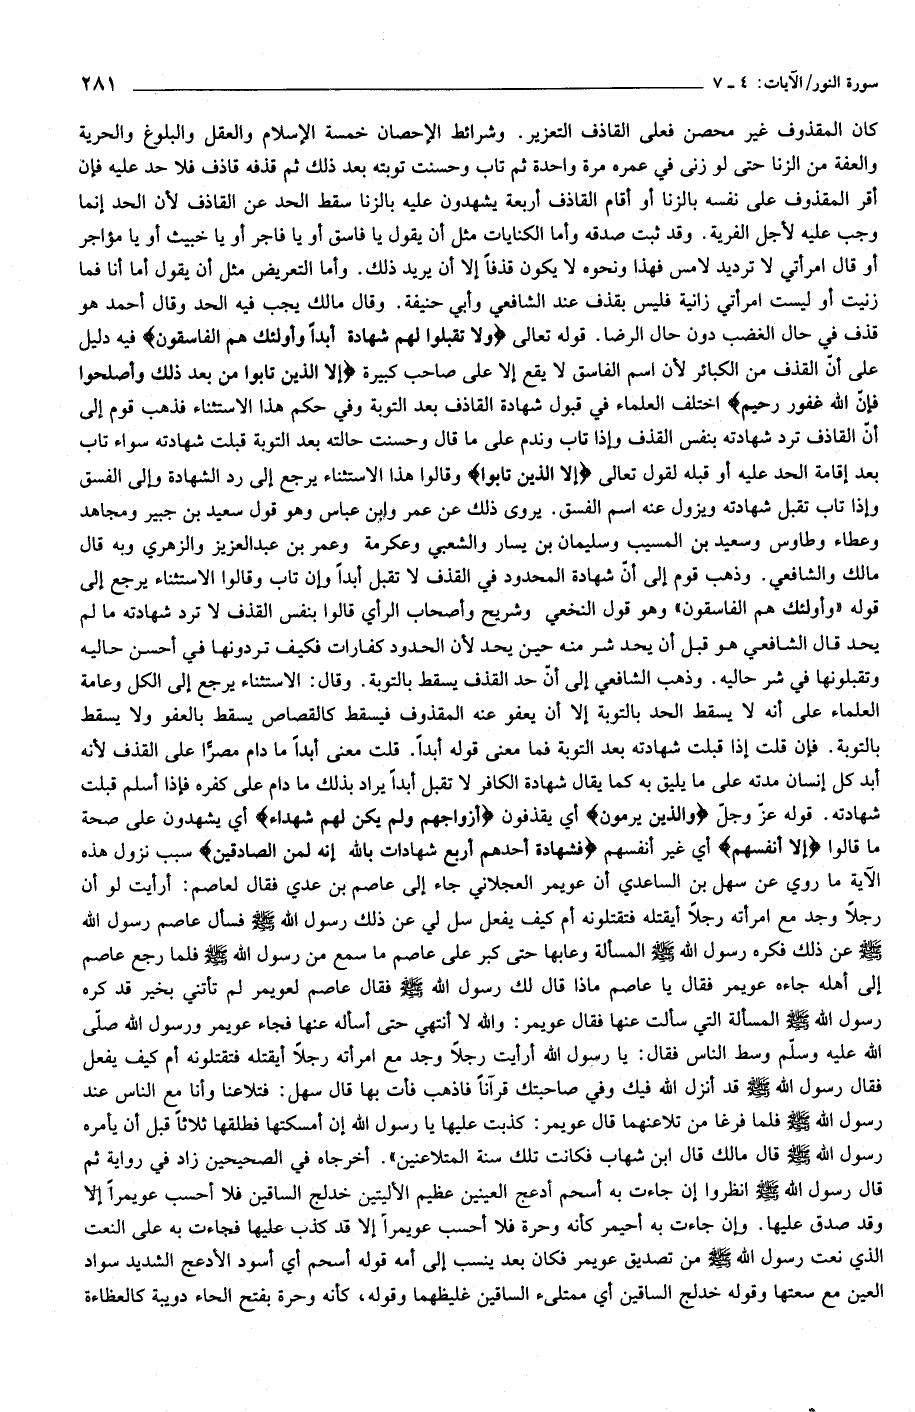 سورة النور/الآيات: ٤ ـ ٧ ٢٨١
كان المقذوف غير محصن فعلى القاذف التعزير. وشرائط الإحصان خمسة الإسلام والعقل والبلوغ والحرية
والعفة من الزنا حتى لو زنى في عمره مرة واحدة ثم تاب وحسنت توبته بعد ذلك ثم قذفه قاذف فلا حد عليه فإن
أقر المقذوف على نفسه بالزنا أو أقام القاذف أربعة يشهدون عليه بالزنا سقط الحد عن القاذف لأن الحد إنما
وجب عليه لأجل الفرية. وقد ثبت صدقه وأما الكنايات مثل أن يقول يا فاسق أو يا فاجر أو يا خبيث أو يا مؤاجر
أو قال امرأتي لا ترديد لامس فهذا ونحوه لا يكون قذفاً إلا أن يريد ذلك. وأما التعريض مثل أن يقول أما أنا فما
زنيت أو ليست امرأتي زانية فليس بقذف عند الشافعي وأبي حنيفة. وقال مالك يجب فيه الحد وقال أحمد هو
قذف في حال الغضب دون حال الرضا. قوله تعالى ﴿ولا تقبلوا لهم شهادة أبداً وأولئك هم الفاسقون﴾ فيه دليل
على أنّ القذف من الكبائر لأن اسم الفاسق لا يقع إلا على صاحب كبيرة ﴿إلا الذين تابوا من بعد ذلك وأصلحوا
فإنّ الله غفور رحيم﴾ اختلف العلماء في قبول شهادة القاذف بعد التوبة وفي حكم هذا الاستثناء فذهب قوم إلى
أنّ القاذف ترد شهادته بنفس القذف وإذا تاب وندم على ما قال وحسنت حالته بعد التوبة قبلت شهادته سواء تاب
بعد إقامة الحد عليه أو قبله لقول تعالى ﴿إلا الذين تابوا﴾ وقالوا هذا الاستثناء يرجع إلى رد الشهادة وإلى الفسق
وإذا تاب تقبل شهادته ويزول عنه اسم الفسق. يروى ذلك عن عمر وابن عباس وهو قول سعيد بن جبير ومجاهد
وعطاء وطاوس وسعيد بن المسيب وسليمان بن يسار والشعبي وعكرمة وعمر بن عبدالعزيز والزهري وبه قال
مالك والشافعي. وذهب قوم إلى أنّ شهادة المحدود في القذف لا تقبل أبداً وإن تاب وقالوا الاستثناء يرجع إلى
قوله «وأولئك هم الفاسقون» وهو قول النخعي وشريح وأصحاب الرأي قالوا بنفس القذف لا ترد شهادته ما لم
يحد قال الشافعي هو قبل أن يحد شر منه حين يحد لأن الحدود كفارات فكيف تردونها في أحسن حاليه
وتقبلونها في شر حاليه. وذهب الشافعي إلى أنّ حد القذف يسقط بالتوبة. وقال: الاستثناء يرجع إلى الكل وعامة
العلماء على أنه لا يسقط الحد بالتوبة إلا أن يعفو عنه المقذوف فيسقط كالقصاص يسقط بالعفو ولا يسقط
بالتوبة. فإن قلت إذا قبلت شهادته بعد التوبة فما معنى قوله أبداً. قلت معنى أبداً ما دام مصرًّا على القذف لأنه
أبد كل إنسان مدته على ما يليق به كما يقال شهادة الكافر لا تقبل أبداً يراد بذلك ما دام على كفره فإذا أسلم قبلت
شهادته. قوله عزّ وجلّ ﴿والذين يرمون﴾ أي يقذفون ﴿أزواجهم ولم يكن لهم شهداء﴾ أي يشهدون على صحة
ما قالوا ﴿إلا أنفسهم﴾ أي غير أنفسهم ﴿فشهادة أحدهم أربع شهادات بالله إنه لمن الصادقين﴾ سبب نزول هذه
الآية ما روي عن سهل بن الساعدي أن عويمر العجلاني جاء إلى عاصم بن عدي فقال لعاصم: أرأيت لو أن
رجلاً وجد مع امرأته رجلاً أيقتله فتقتلونه أم كيف يفعل سل لي عن ذلك رسول الله ﷺ فسأل عاصم رسول الله
ﷺ عن ذلك فكره رسول الله ﷺ المسألة وعابها حتى كبر على عاصم ما سمع من رسول الله ﷺ فلما رجع عاصم
إلى أهله جاءه عويمر فقال يا عاصم ماذا قال لك رسول الله ﷺ فقال عاصم لعويمر لم تأتني بخير قد كره
رسول الله ﷺ المسألة التي سألت عنها فقال عويمر: والله لا أنتهي حتى أسأله عنها فجاء عويمر ورسول الله صلّى
الله عليه وسلّم وسط الناس فقال: يا رسول الله أرأيت رجلاً وجد مع امرأته رجلاً أيقتله فتقتلونه أم كيف يفعل
فقال رسول الله ﷺ قد أنزل الله فيك وفي صاحبتك قرآناً فاذهب فأت بها قال سهل: فتلاعنا وأنا مع الناس عند
رسول الله ﷺ فلما فرغا من تلاعنهما قال عويمر: كذبت عليها يا رسول الله إن أمسكتها فطلقها ثلاثاً قبل أن يأمره
رسول الله ﷺ قال مالك قال ابن شهاب فكانت تلك سنة المتلاعنين». أخرجاه في الصحيحين زاد في رواية ثم
قال رسول الله ﷺ انظروا إن جاءت به أسحم أدعج العينين عظيم الأليتين خدلج الساقين فلا أحسب عويمراً إلا
وقد صدق عليها. وإن جاءت به أحيمر كأنه وحرة فلا أحسب عويمراً إلا قد كذب عليها فجاءت به على النعت
الذي نعت رسول الله ﷺ من تصديق عويمر فكان بعد ينسب إلى أمه قوله أسحم أي أسود الأدعج الشديد سواد
العين مع سعتها وقوله خدلج الساقين أي ممتلىء الساقين غليظهما وقوله، كأنه وحرة بفتح الحاء دويبة كالعظاءة